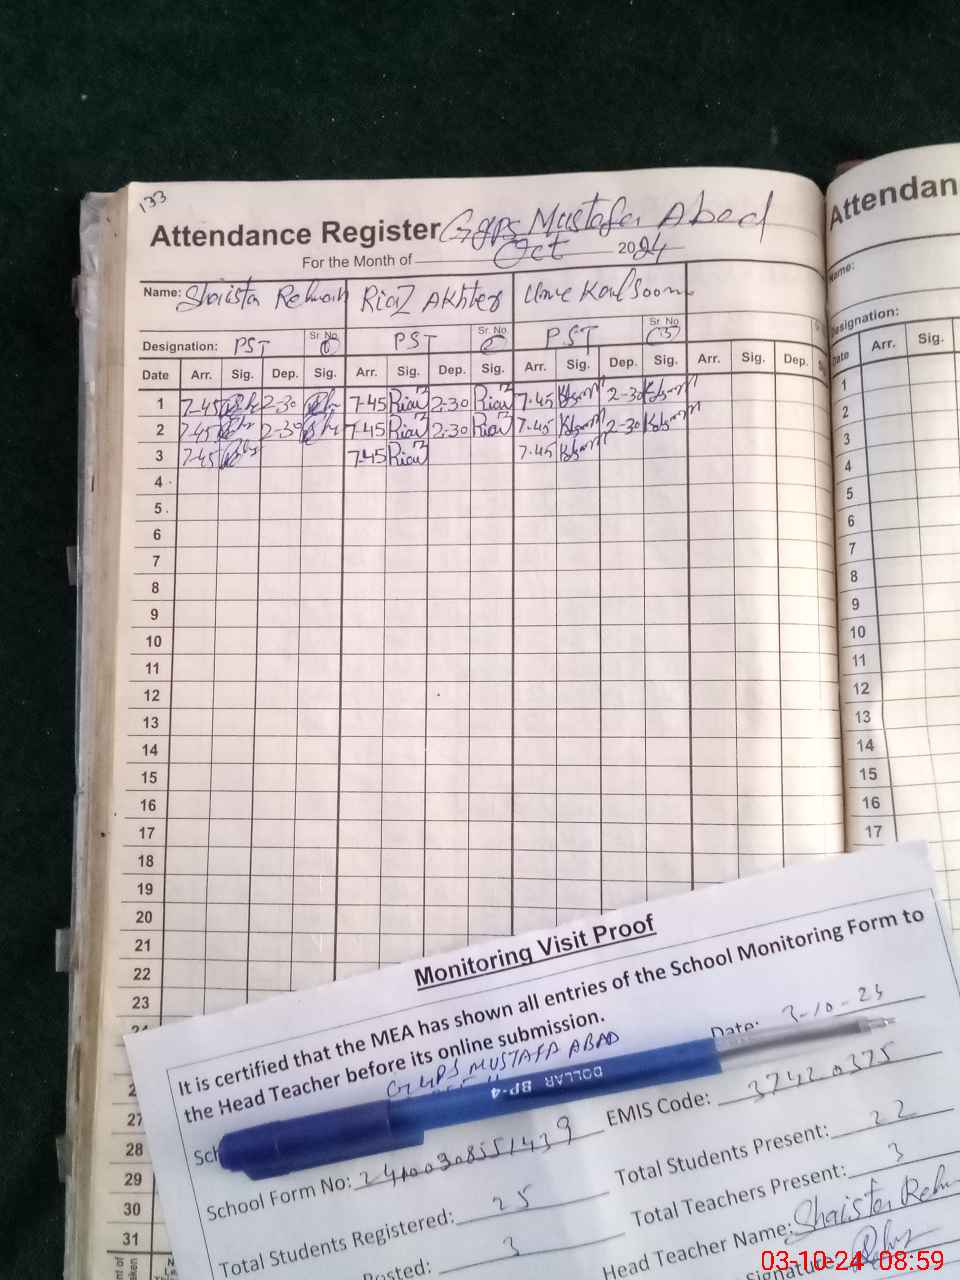 133
Attendance Register GGPS Mustafa Abad
For the Month of Oct 2024
Name: Shaista Rehman Riaz Akhter Ume Kalsoom
Sr. No. Sr. No. Sr. No.
Designation: PST PST PST
Date Arr. Sig. Dep. Sig. Arr. Sig. Dep. Sig. Arr. Sig. Dep. Sig. Arr. Sig. Dep.
1 7-45 2-30 7-45 Riaz 2-30 Riaz 7-45 2-30
2 7-45 2-30 7-45 Riaz 2-30 Riaz 7-45 2-30
3 7-45 7-45 Riaz 7-45
4
5
6
7
8
9
10
11
12
13
14
15
16
17
18
19
20
21
22
23
27
28
29
30
31
Attendan
Name:
Designation:
Date Arr. Sig.
1
2
3
4
5
6
7
8
9
10
11
12
13
14
15
16
17
Monitoring Visit Proof
It is certified that the MEA has shown all entries of the School Monitoring Form to
the Head Teacher before its online submission.
Date: 3-10-24
MUSTAFA ABAD
DOLLAR BP-4
EMIS Code: 37420375
School Form No:
Total Students Present: 22
Total Students Registered: 25
Total Teachers Present: 3
Posted: 3
Head Teacher Name: Shaista Rehm
Signature:
03-10-24 08:59